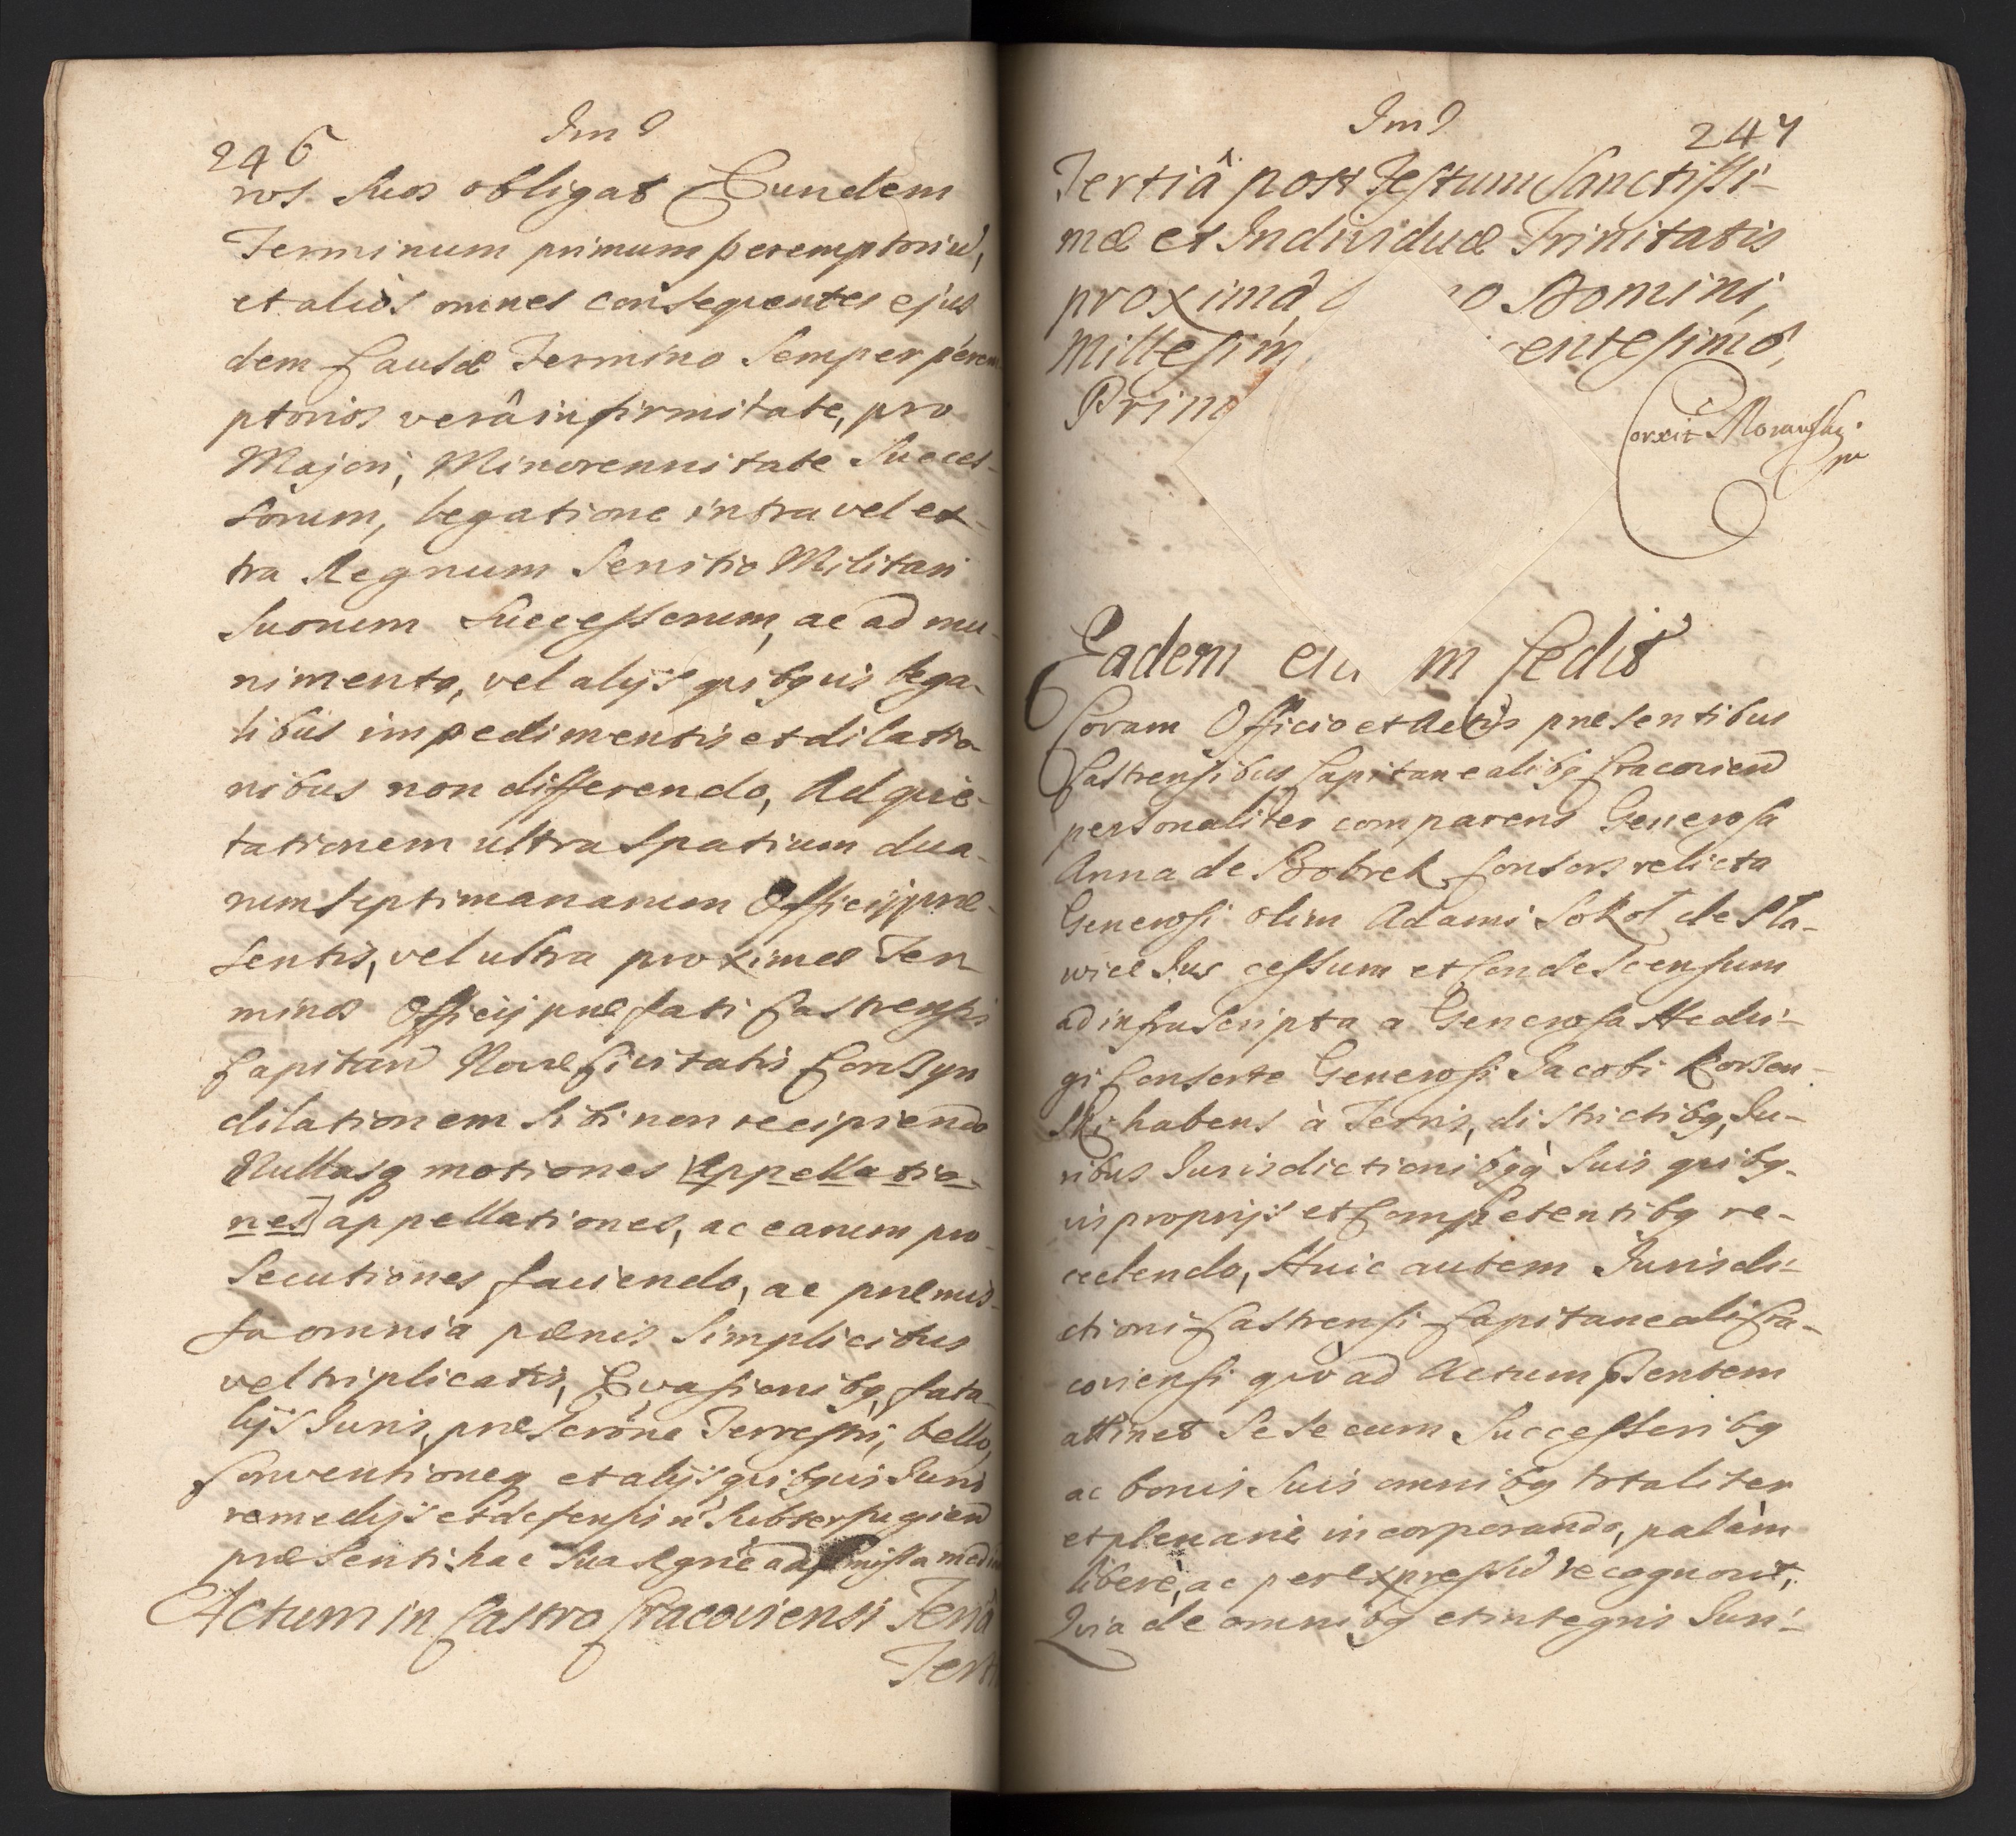 246
Im?
ros suos obligat Eundem
Terminum primum peremptoriū,
et aliòs omnes consequentes ejus
dem Causæ Termino semper perem
ptorios verâ infirmitate, pro
Majori, Minorennitate Succes-
sorum, legatione intra vel ex-
tra Regnum Servitio Militari
Suorum Successorum, ac ad mu-
nimenta, vel alijs quibqvis lega-
libus impedimentis et dilatio-
nibus non differendo, Ad quie-
tationem ultra Spatium dua-
rum Septimanarum Officij præ-
sentis, vel ultra proximæ Ter-
minos Officij præfati Castrensis
Capitan Novæ Civitatis Corsyn
dilationem sibi non recipiendo
Nullasq motiones Appellatio-
nes] appellationes, ac earum pro-
secutiones faciendo, ac præmis-
sa omnia pænis simplicibus
vel triplicatis, Evasionibq, fata-
lijs Juris, præscrōne Terrestri, bello,
Conventioneq et alijs quibqvis Juris
remedijs et defensin subterfugiend
præsenti hac sua Rgne ad missa med
Actum in Castro Cracoviensi Feriâ
Terti
Im?
247
Tertiâ post Festum Sanctissi-
mæ et Individuæ Trinitatis
proximâ, o Domini,
Millesim centesimo,
Prim
Corexit Morawski
mp
Eadem in Cedit
Coram Officio et Actis præsentibus
Castrensibus Capitanealibq Cracovien
personaliter comparens Generosa
Anna de Bobrek Consors relicta
Generosi olim Adami Sokoł de Sła-
wice Jus cessum et Condescensum
ad infrascripta a Generosa Hedvi-
gi Consorte Generosi Jacobi Korsen-
ski habens à Terris, districtibq, Ju-
ribus Jurisdictionibqq suis quibq-
vis proprijs et Competentibq re-
cedendo, Huic autem Jurisdi-
ctioni Castrensi Capitaneali Cra-
coviensi quò ad Actum psentem
attinet Se se cum Successoribq
ac bonis suis omnibq totaliter
et plenariè incorporando, palàm
liberè, ac per expressū recognovit,
Quia de omnibq et integris Juri-